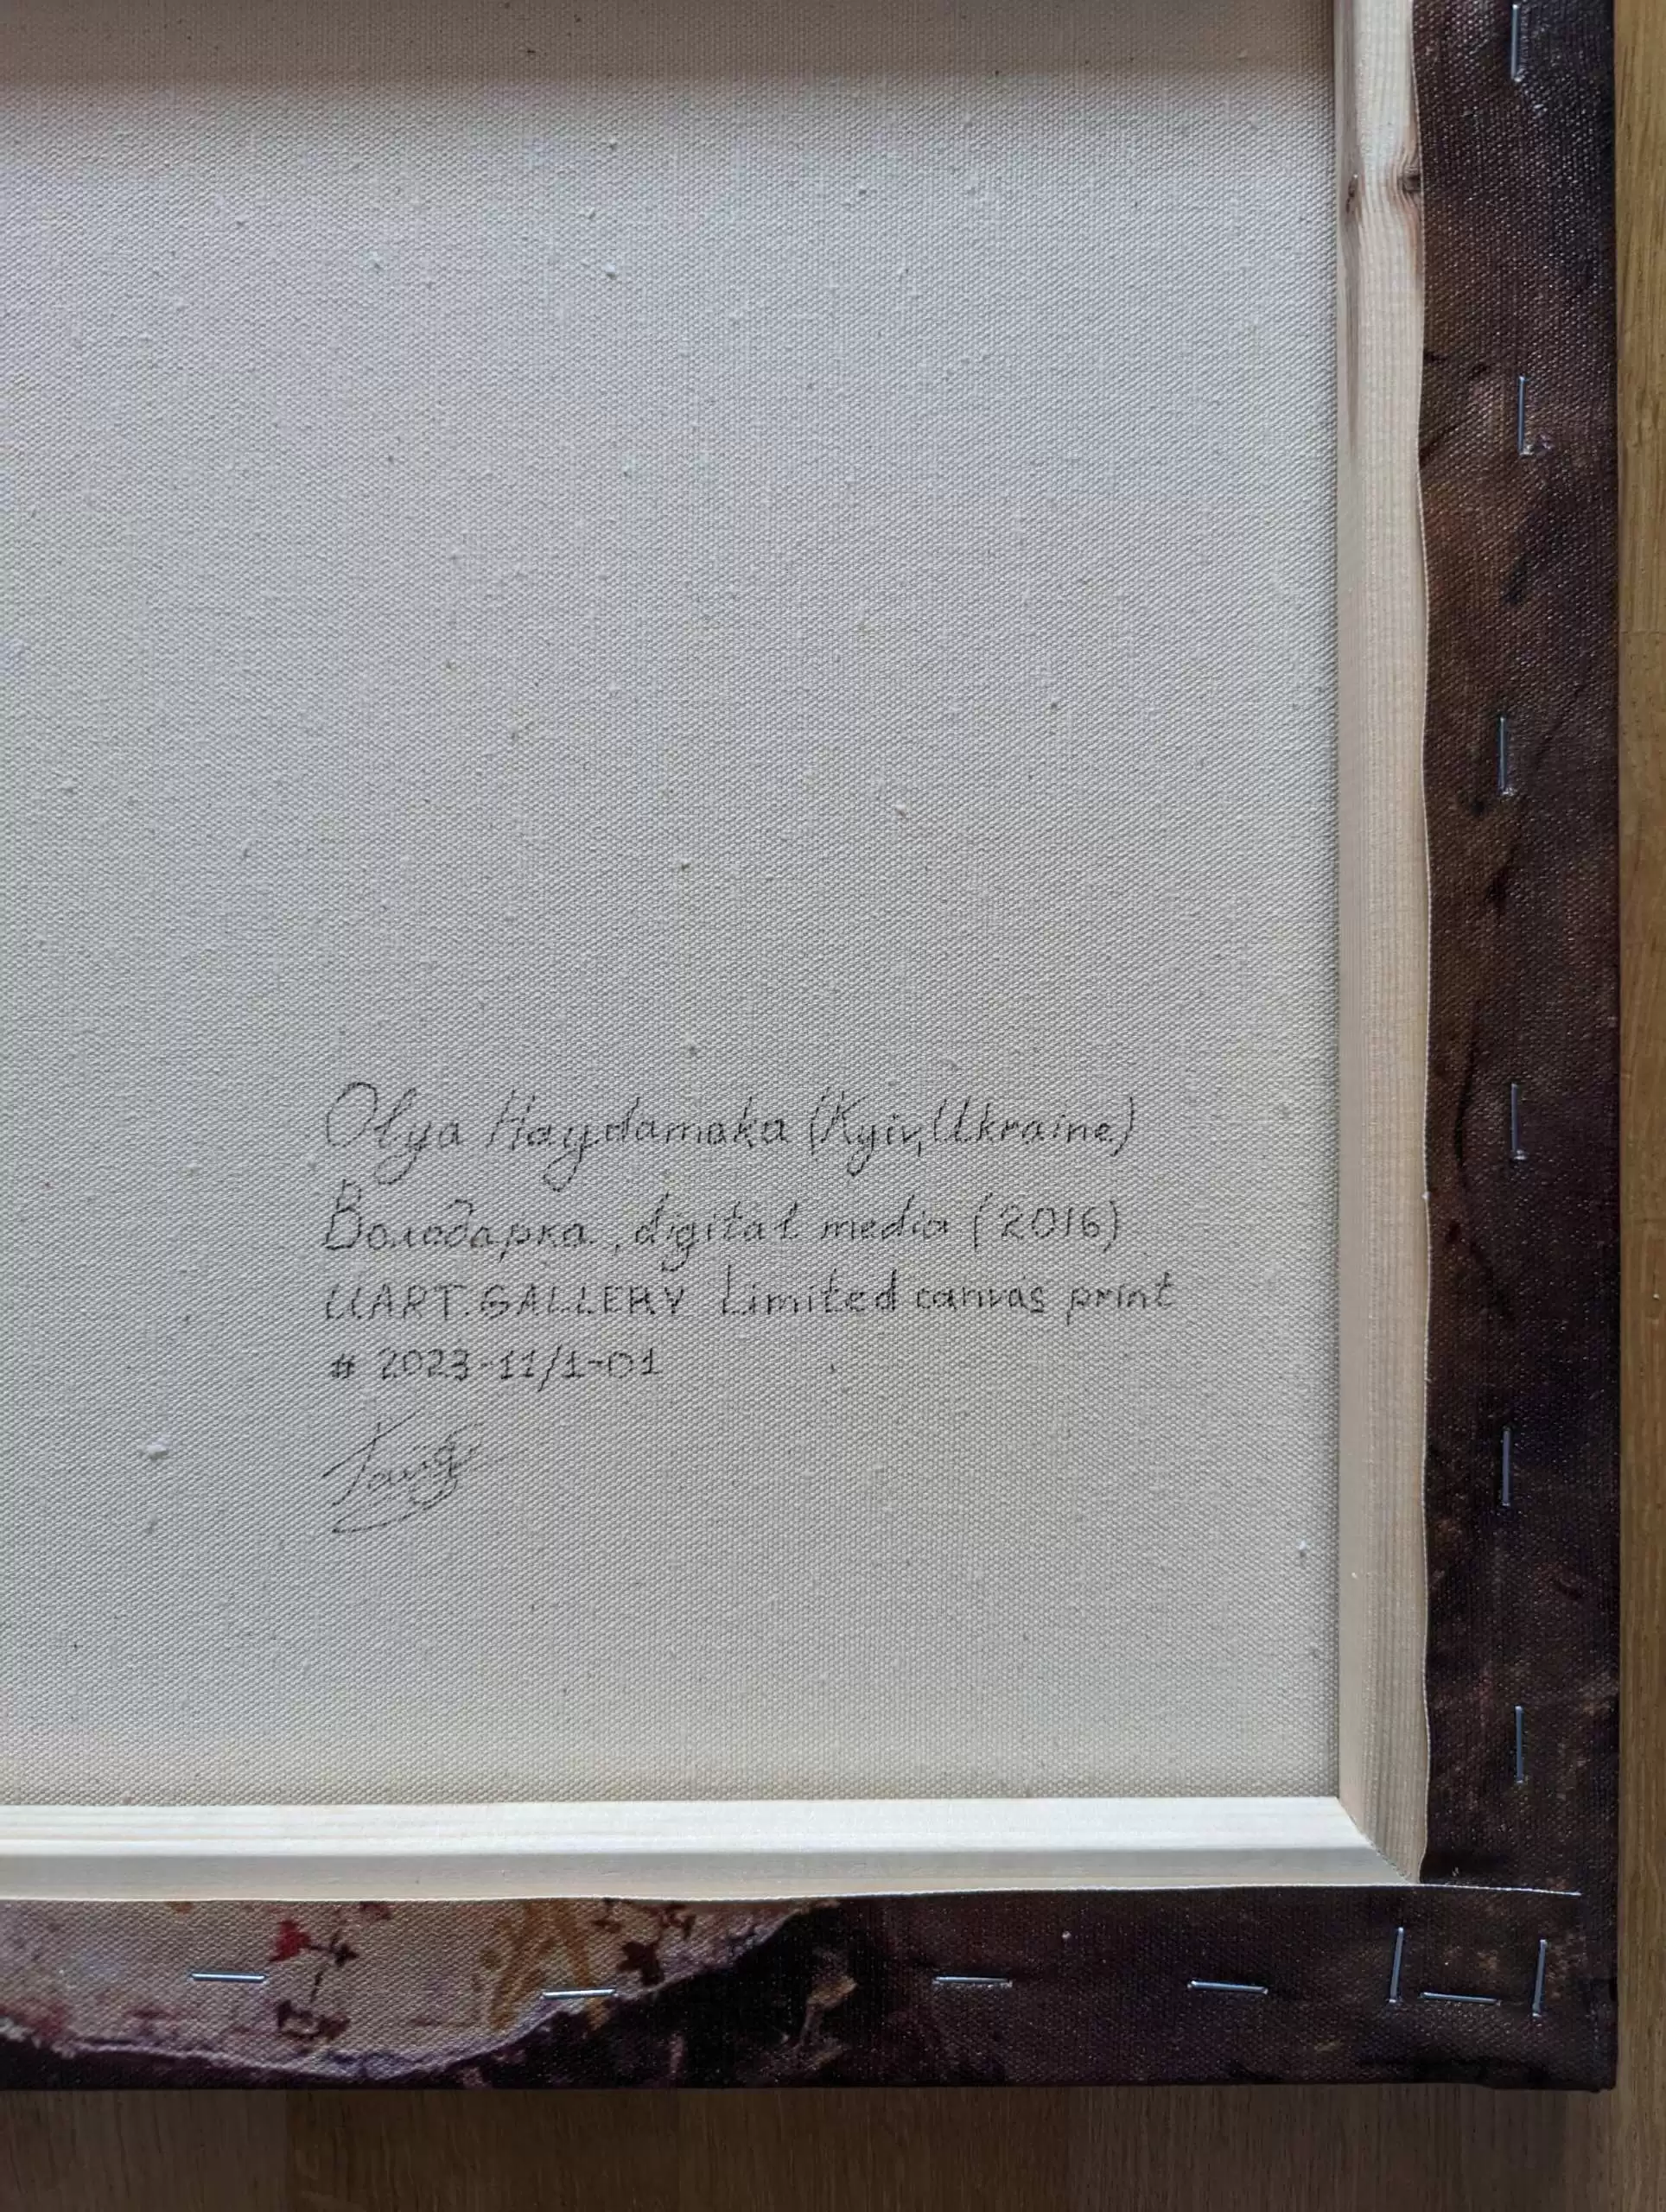 Olya Haydamaka (Kyiv, Ukraine)
Володарка, digital media (2016)
UART.GALLERY Limited canvas print
# 2023-11/1-01